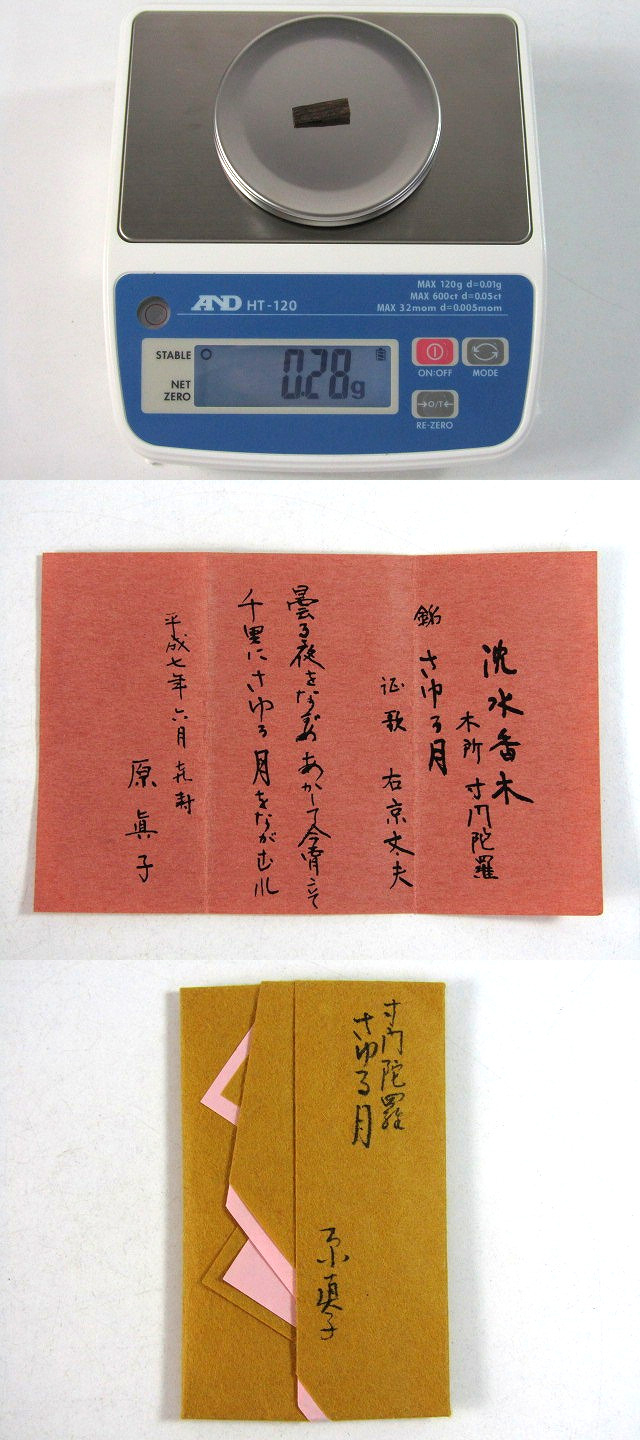 MAX 120g d=0.01g
MAX 600ct d=0.05ct
MAX 32mom d=0.005mom
AND HT-120
STABLE
NET
ZERO
0.28g
ON:OFF
MODE
→O/T←
RE-ZERO
沈水香木
木所 寸門陀羅
銘 さゆる月
証歌 右京大夫
曇る夜をながめあかして今宵立て
千里にさゆる月をながむれ
平成七年六月 㐂寿
原 眞子
寸門陀羅
さゆる月
原眞子